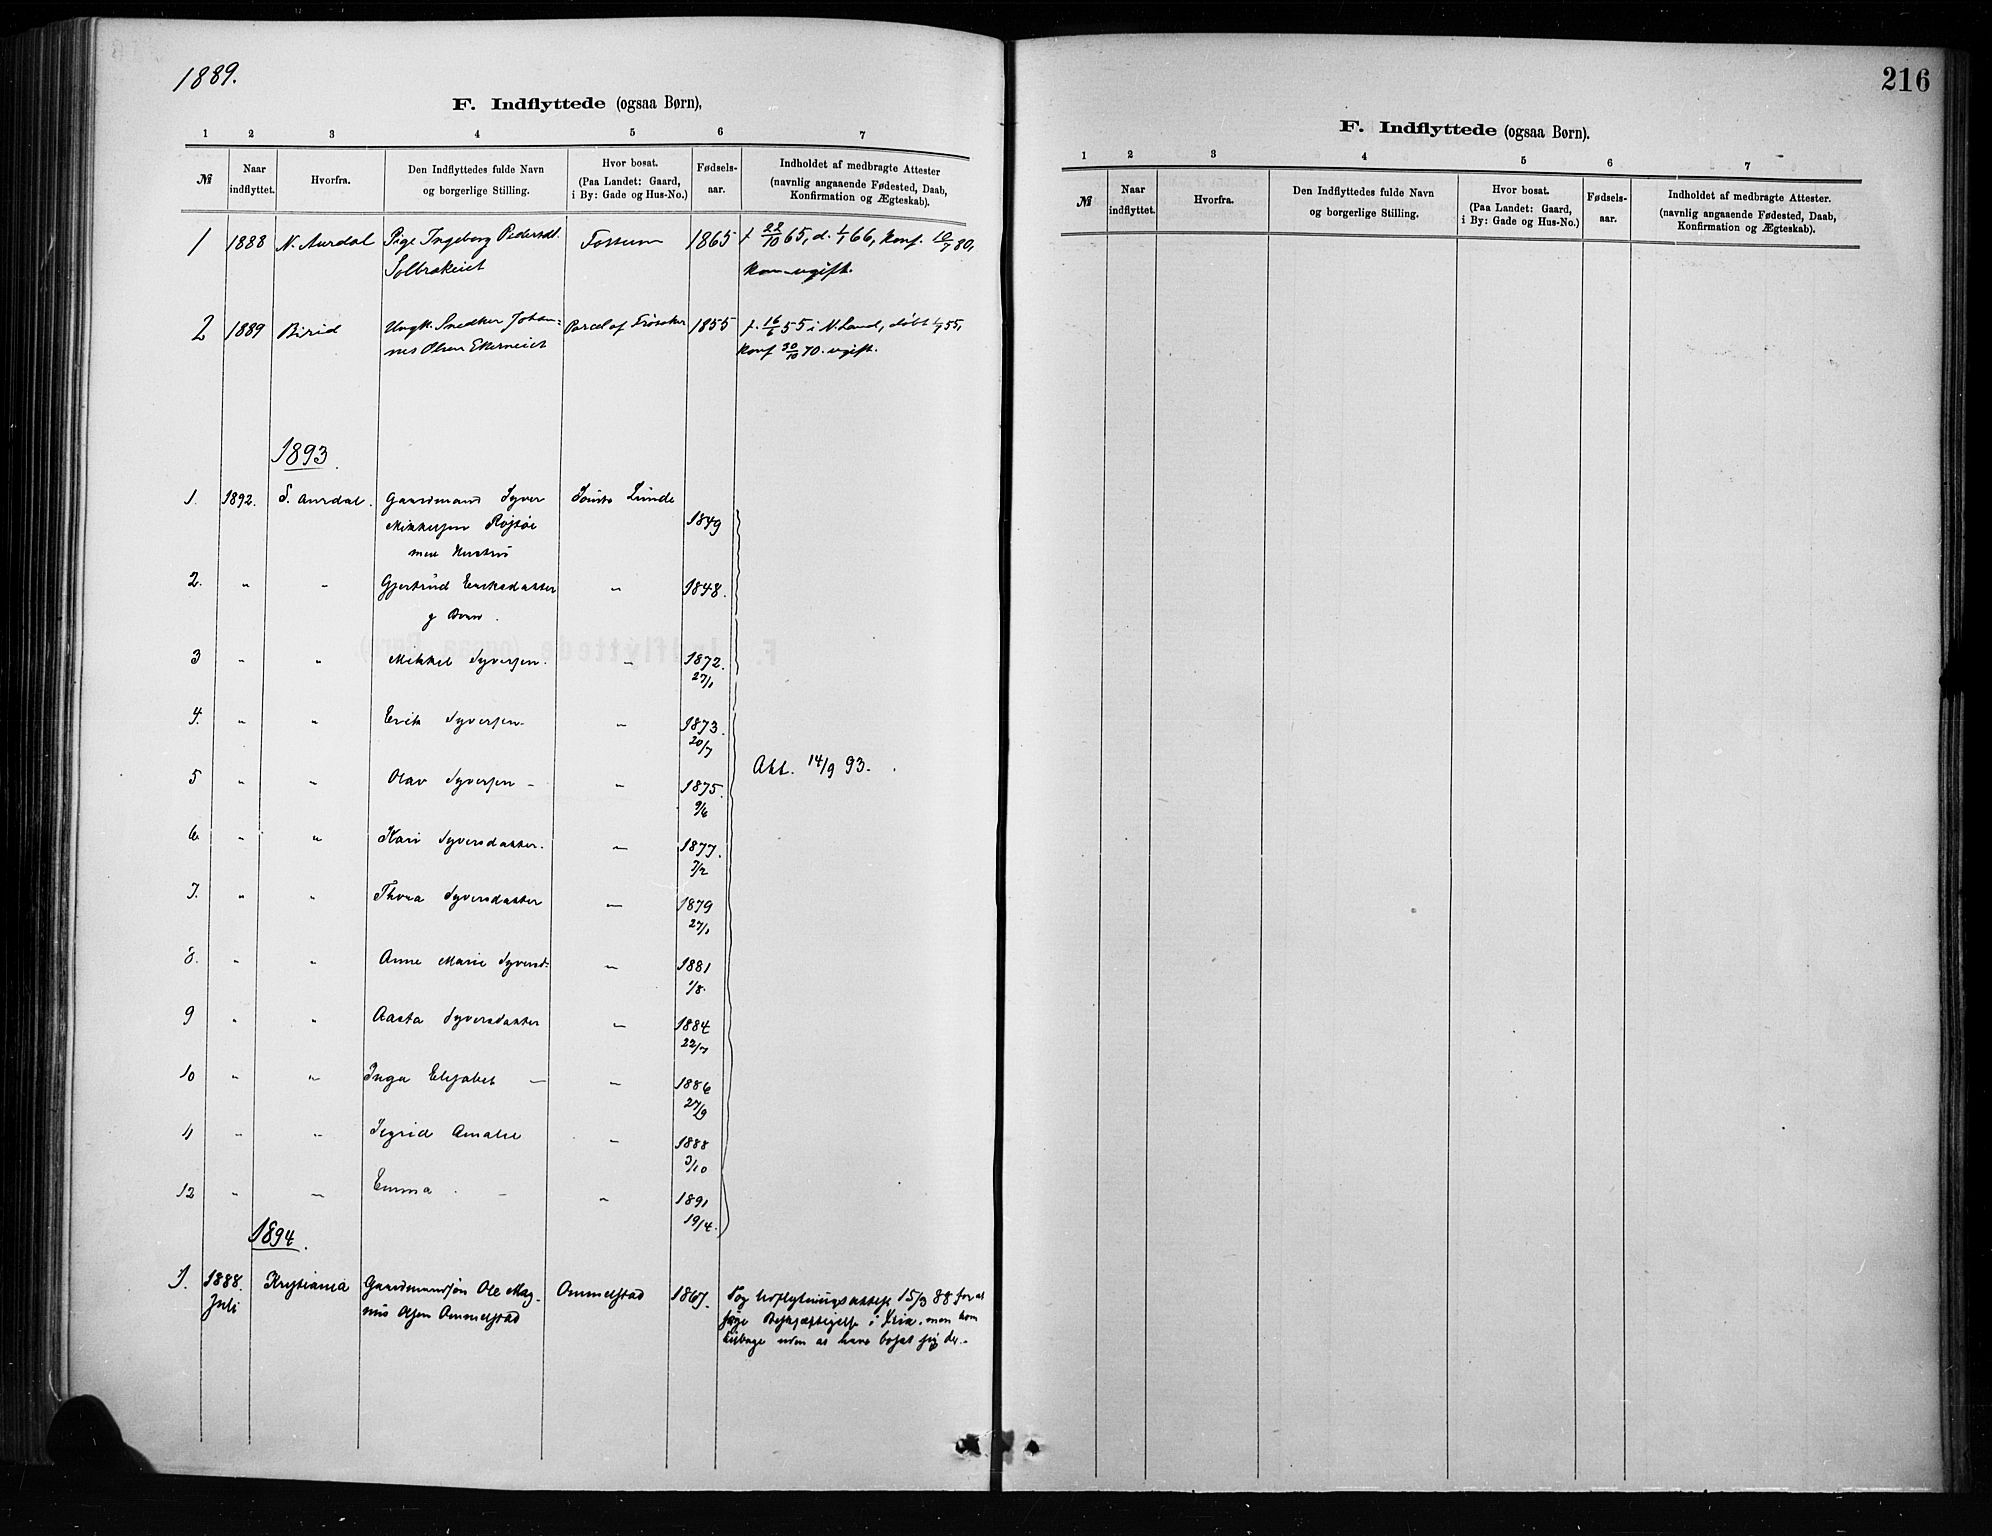 1889.
F. Indflyttede (ogsaa Børn),
1 2 3 4 5 6 7
№
Naar indflyttet.
Hvorfra.
Den Indflyttedes fulde Navn og borgerlige Stilling.
Hvor bosat. (Paa Landet: Gaard, i By: Gade og Hus-No.)
Fødsels-aar.
Indholdet af medbragte Attester (navnlig angaaende Fødested, Daab, Konfirmation og Ægteskab).
1 1888 N. Aurdal Pige Ingeborg Pedersd. Fossum 1865 f. 22/10 65, d. 1/1 66, konf. 10/7 80,
Solbrækeiet ugift.
2 1889 Birid Ungk. Snedker Johan- Parcel af Frøsaker 1855 f. 16/6 55 i N. Land, døbt 1/7 55,
nes Olsen Ekerneiet konf 30/10 70. ugift.
1893.
1. 1892. S. Aurdal. Gaardmand Syver Lunde
Mikkelsen Røjsøe 1849
med Hustru
2. " " Gjertrud Eriksdatter " 1848.
og Børn.
3 " " Mikkel Syversen. " 1872.
27/1
4. " " Erik Syversen. " 1873.
20/7
5 " " Olav Syversen " 1875.
9/6
Att. 14/9 93.
6 " " Kari Syversdatter. " 1877.
7/2
7. " " Thora Syversdatter " 1879
27/1
8. " " Anne Marie Syversd. " 1881
1/8.
9 " " Aasta Syversdatter " 1884
22/7
10 " " Inga Elisabet — " 1886
27/9
11 " " Sigrid Amalie " 1888
3/10
12 " " Emma — " 1891
19/4.
1894.
1. 1888. Kristiania Gaardmandssøn Ole Mag- Ommelstad 1867. Tog Udflytningsattest 15/3 88 for at
Juli nus Olsen Ommelstad søge Beskjæftigelse i Kria, men kom
tilbage uden at have bosat sig der.
216
F. Indflyttede (ogsaa Børn).
1 2 3 4 5 6 7
№
Naar indflyttet.
Hvorfra.
Den Indflyttedes fulde Navn og borgerlige Stilling.
Hvor bosat. (Paa Landet: Gaard, i By: Gade og Hus-No.)
Fødsels-aar.
Indholdet af medbragte Attester. (navnlig angaaende Fødested, Daab, Konfirmation og Ægteskab).